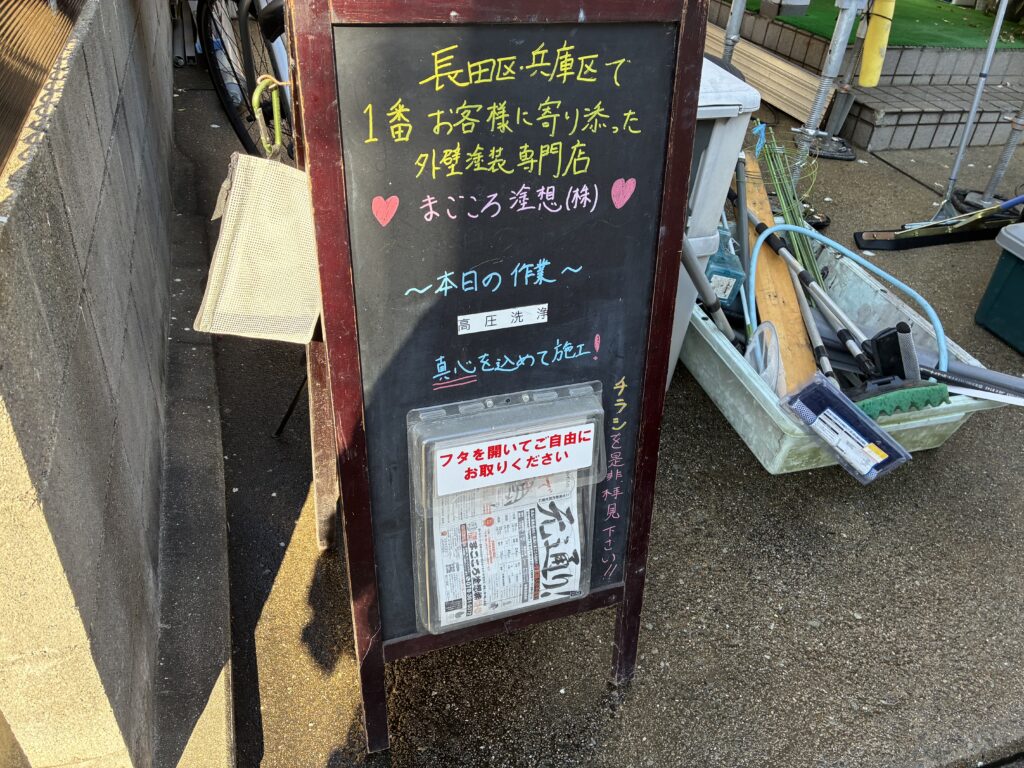 長田区・兵庫区で
1番 お客様に寄り添った
外壁塗装専門店
まごころ塗想(株)
～本日の作業～
高圧洗浄
真心を込めて施工!
チラシを是非拝見下さい!!
フタを開いてご自由に
お取りください
元通り!
まごころ塗想㈱